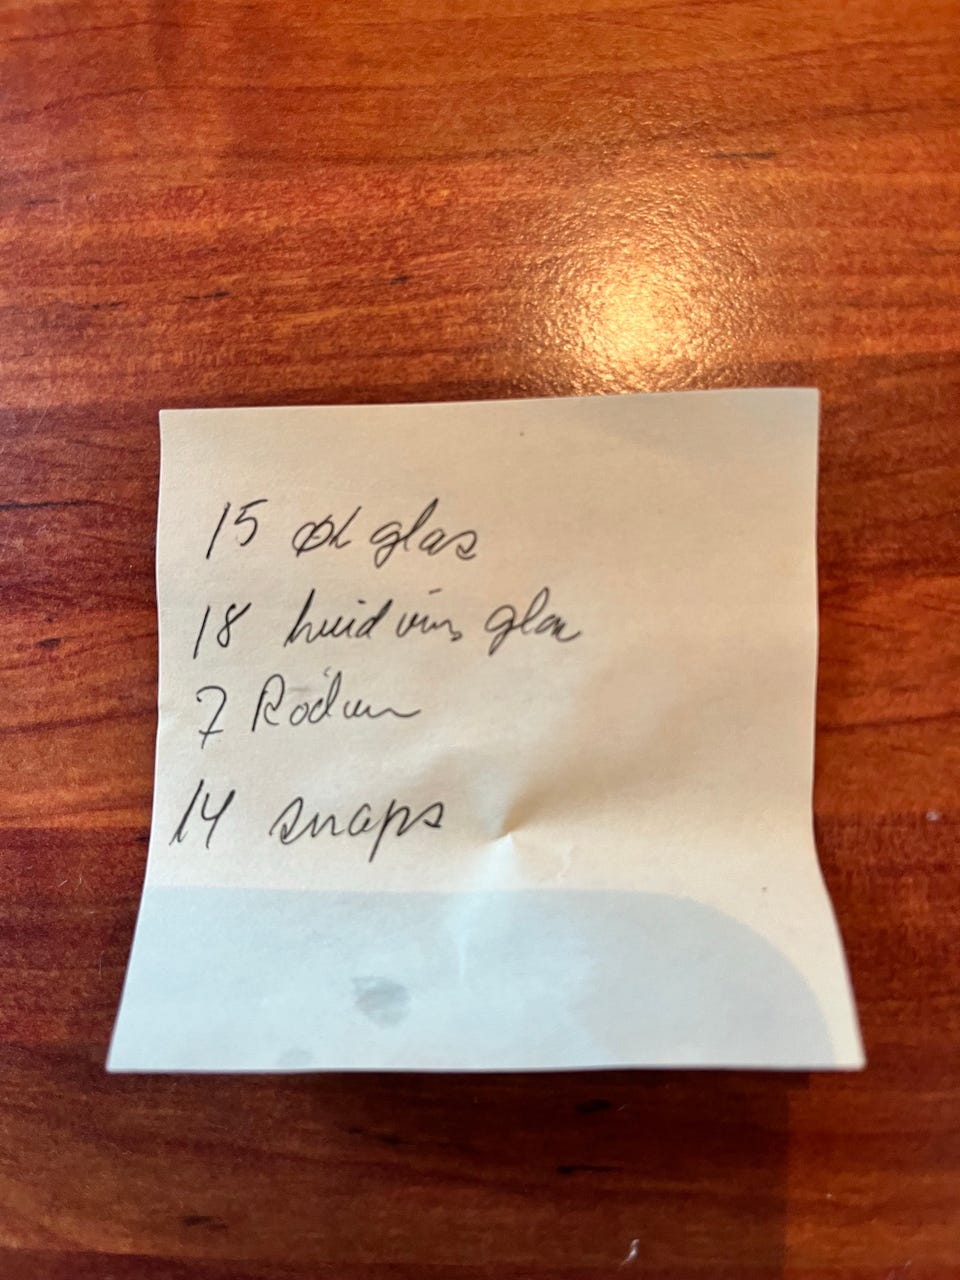 15 øl glas
18 hvid vins glas
7 Rödvin
14 snaps